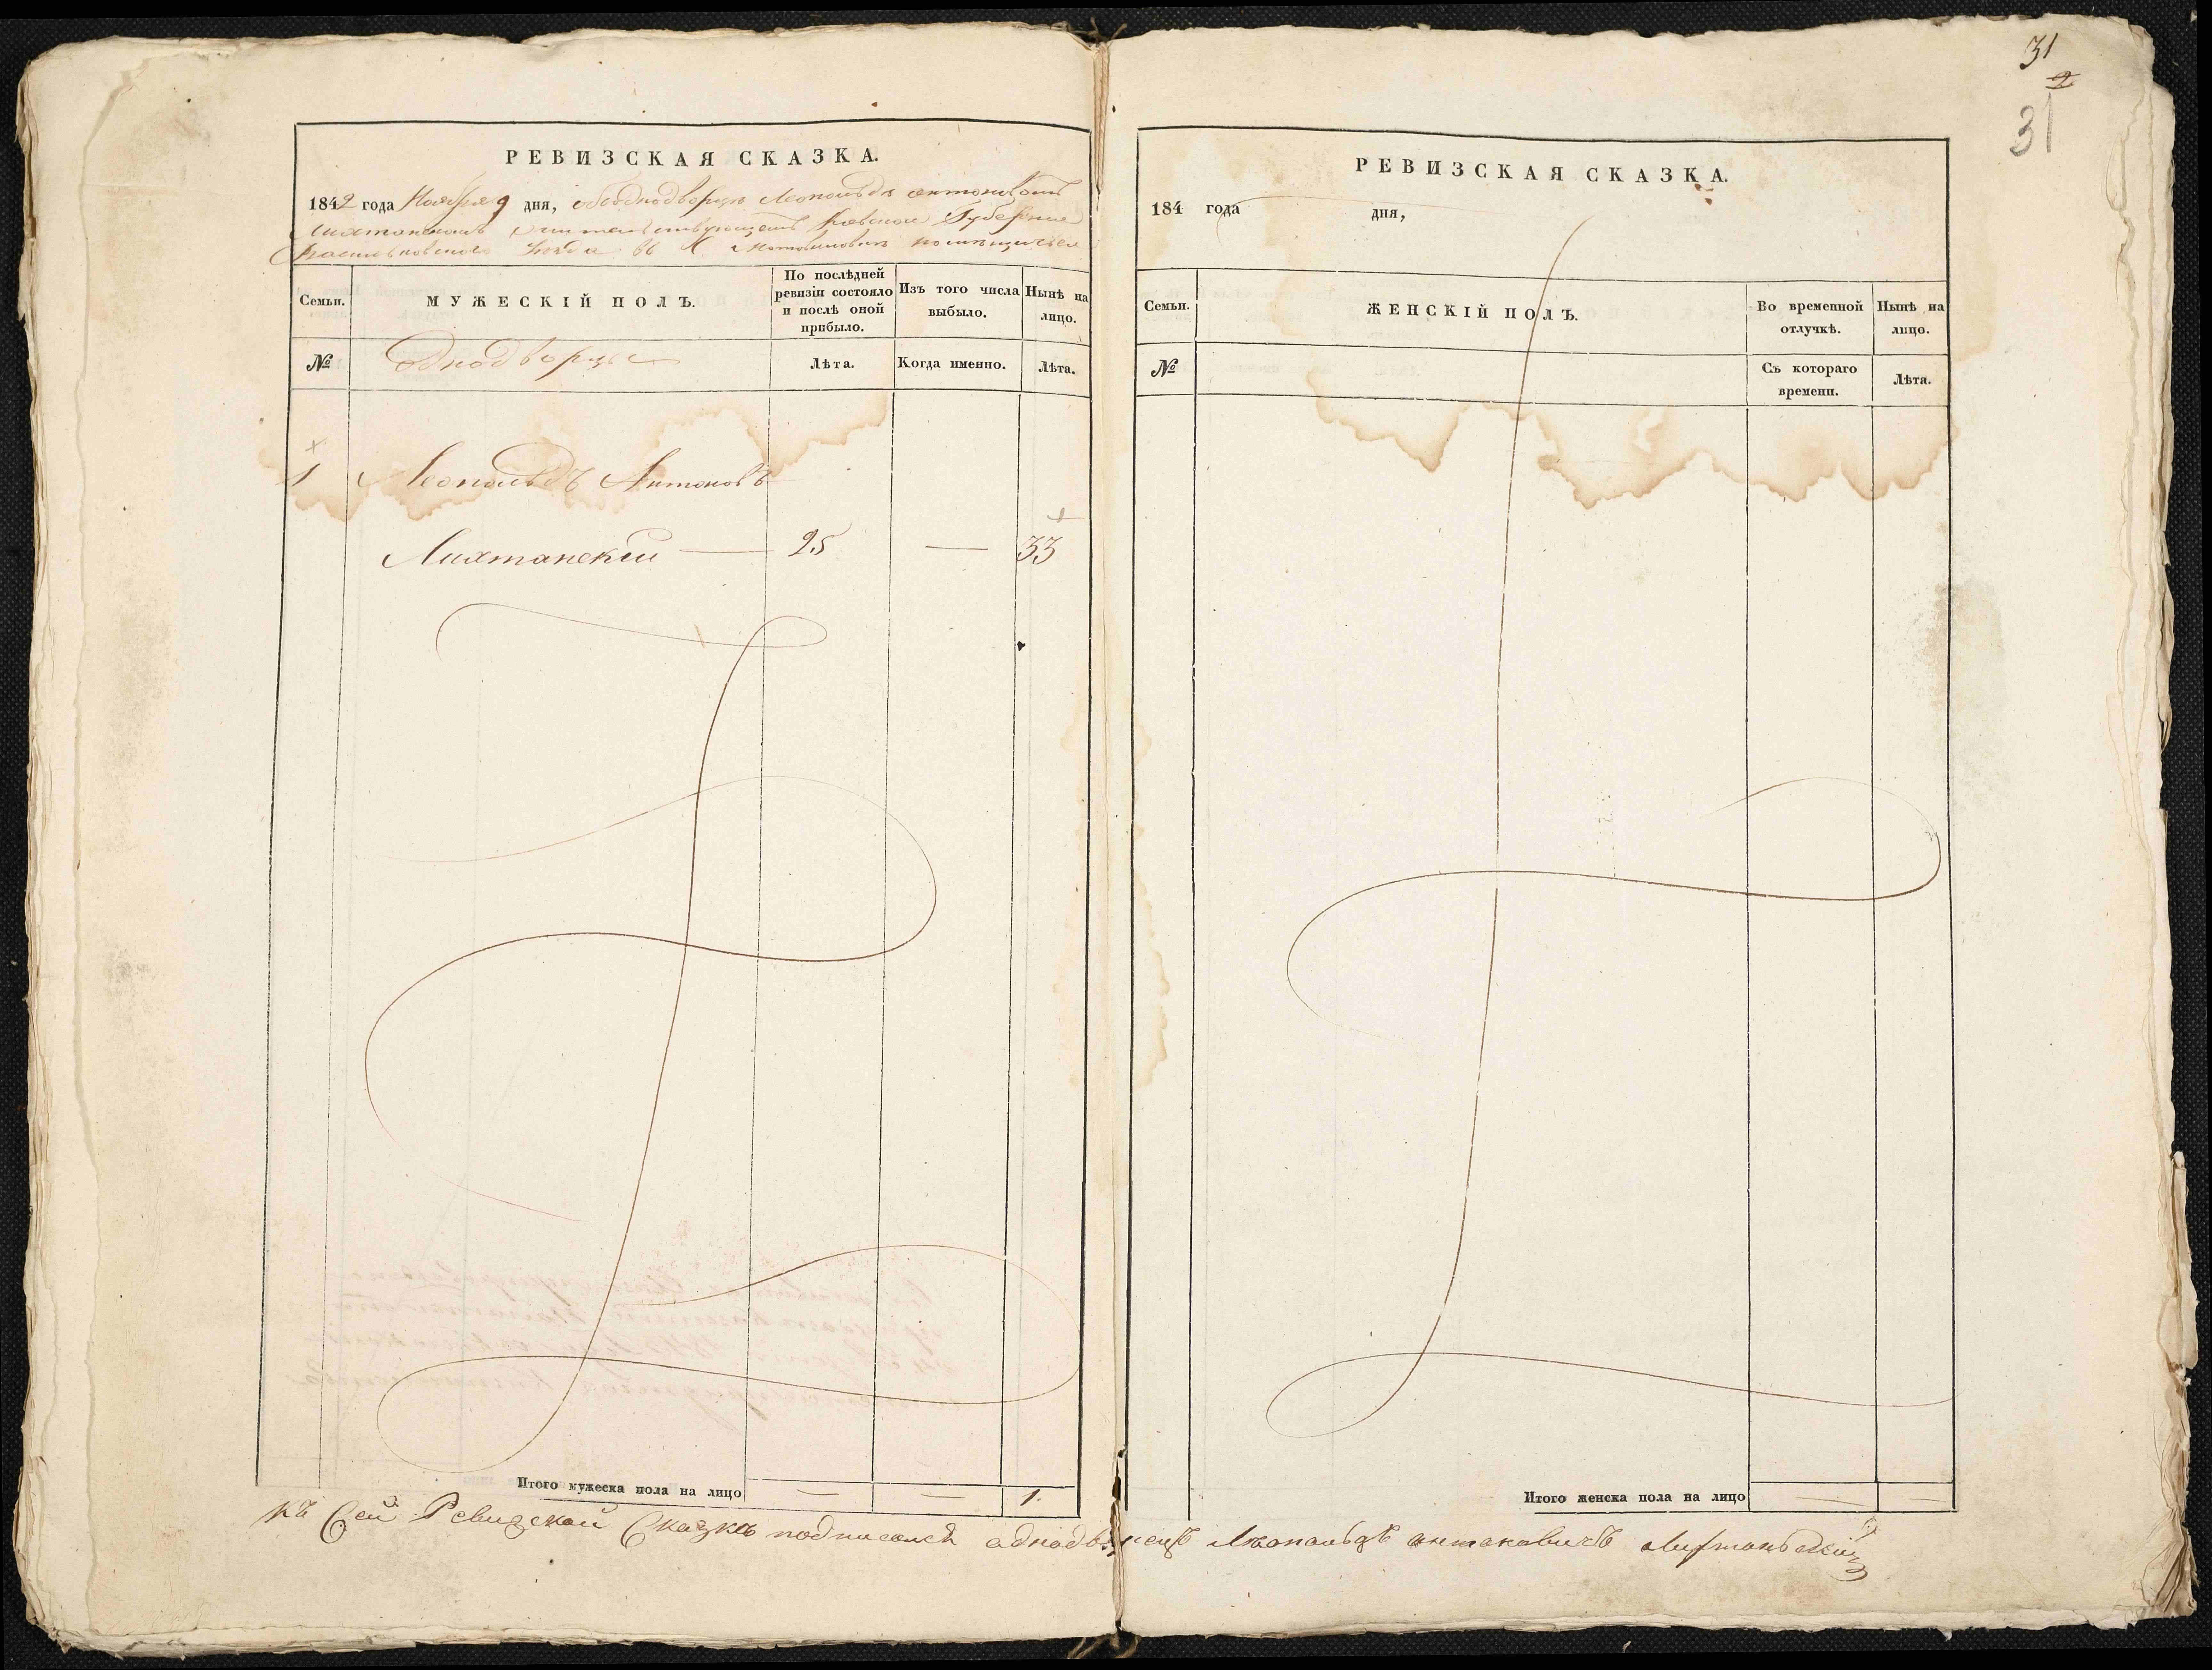 РЕВИЗСКАЯ СКАЗКА.
1842 года Ноября 9 дня, Леопольдѣ Антоновомъ
Губернии
въ
Семьи.
МУЖЕСКІЙ ПОЛЪ.
По послѣдней ревизіи состояло и послѣ оной прибыло.
Изъ того числа выбыло.
Нынѣ на лицо.
№
Однодворцы
Лѣта.
Когда именно.
Лѣта.
1 Леопольдъ Антоновъ
Лихтанскій — 25 — 33
Итого мужеска пола на лицо — — 1.
31
31
РЕВИЗСКАЯ СКАЗКА.
184 года дня,
Семьи.
ЖЕНСКІЙ ПОЛЪ.
Во временной отлучкѣ.
Нынѣ на лицо.
№
Съ котораго времени.
Лѣта.
Итого женска пола на лицо — —
къ Сей Ревизской Сказкѣ подписался